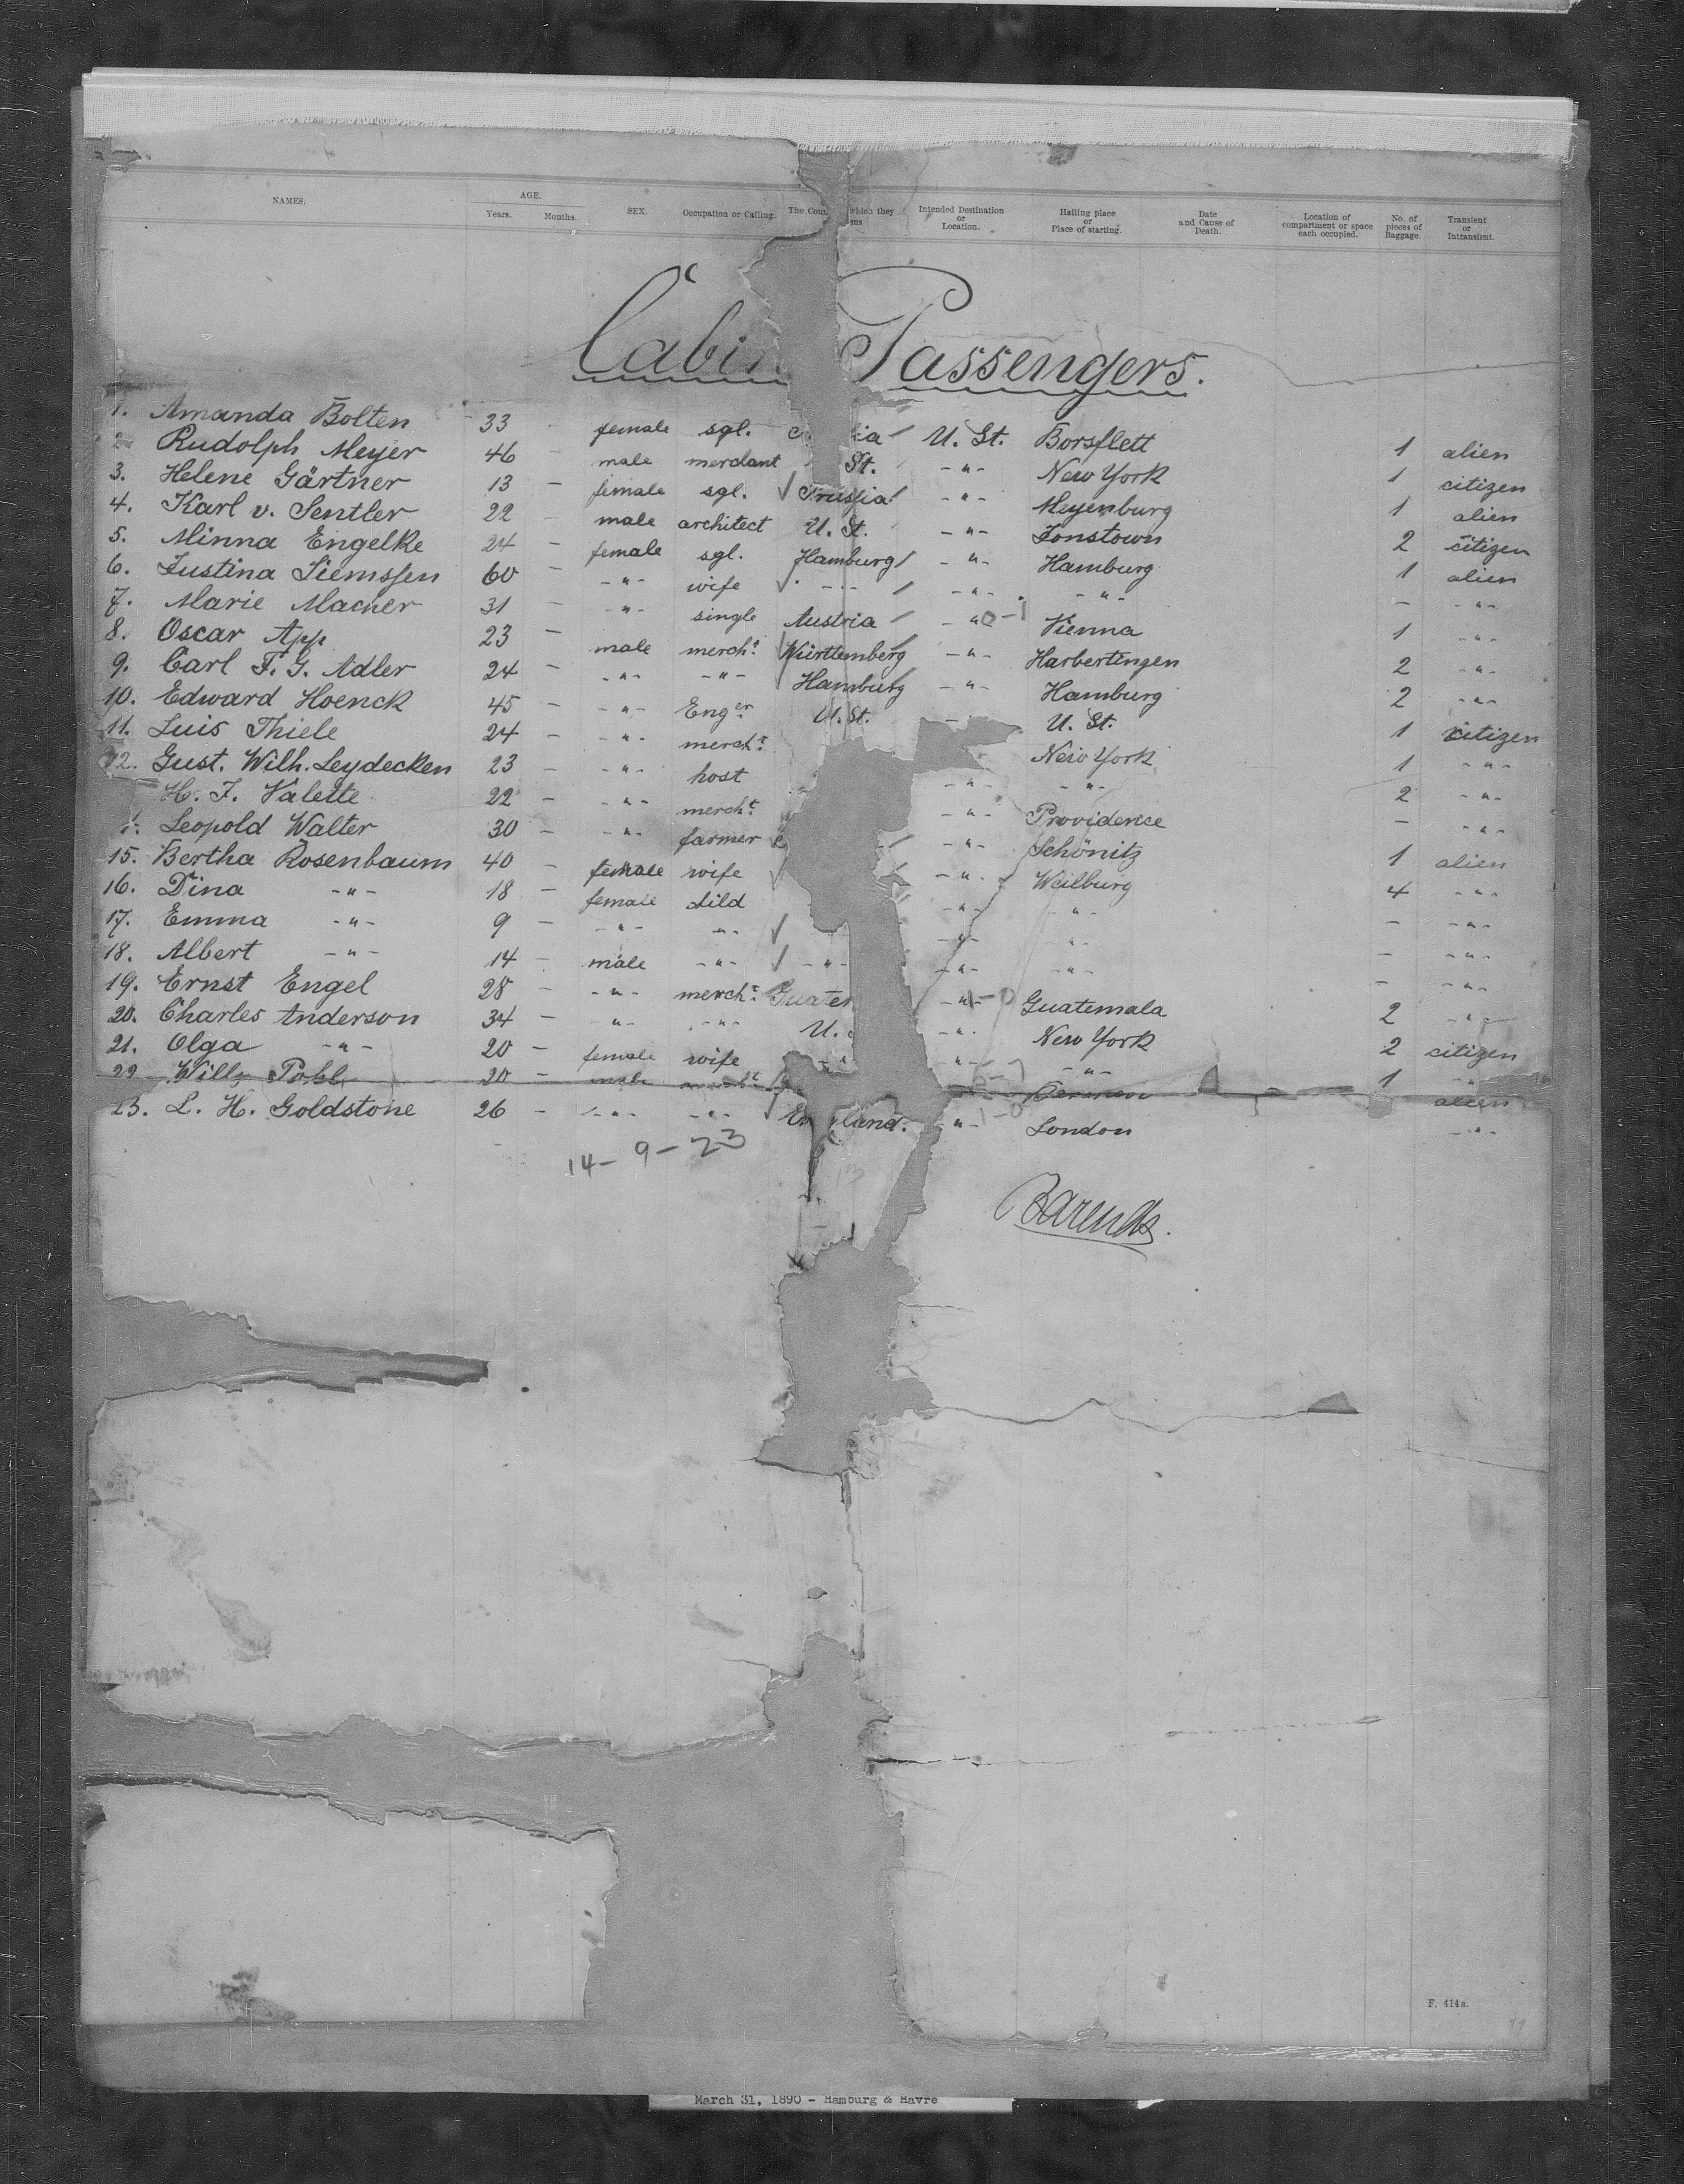 NAMES. AGE. Years. Months. SEX. Occupation or Calling. The Coun which they ens Intended Destination or Location. Hailing place or Place of starting. Date and Cause of Death. Location of compartment or space each occupied. No. of pieces of Baggage. Transient or Intransient.
Cabin Passengers.
1. Amanda Bolten 33 - female sgl. ia U. St. Borsflett 1 alien
2. Rudolph Meyer 46 - male merchant St. - " - New York 1 citizen
3. Helene Gärtner 13 - female sgl. Prussia - " - Meyenburg 1 alien
4. Karl v. Sentler 22 - male architect U. St. - " - Jonstown 2 citizen
5. Minna Engelke 24 - female sgl. Hamburg - " - Hamburg 1 alien
6. Justina Siemssen 60 - - " - wife - " - - " - - " - - - " -
7. Marie Macner 31 - - " - single Austria - " - 0-1 Vienna 1 - " -
8. Oscar App 23 - male mercht. Württemberg - " - Harbertingen 2 - " -
9. Carl F. G. Adler 24 - - " - - " - Hamburg - " - Hamburg 2 - " -
10. Edward Hoenck 45 - - " - Enger U. St. - U. St. 1 citizen
11. Luis Thiele 24 - - " - mercht. New York 1 - " -
12. Gust. Wilh. Leydecken 23 - - " - host - " - - " - 2 - " -
H. J. Valette 22 - - " - mercht. - " - Providence - - " -
Leopold Walter 30 - - " - farmer - " - Schönitz 1 alien
15. Bertha Rosenbaum 40 - female wife - " - Weilburg 4 - " -
16. Dina - " - 18 - female child - " - - " - - - " -
17. Emma - " - 9 - - " - - " - - " - - " - - - " -
18. Albert - " - 14 - male - " - - " - - " - - " - - - " -
19. Ernst Engel 28 - - " - mercht. Guate - " - 1-0 Guatemala 2 - " -
20. Charles Anderson 34 - - " - - " - U. - " - New York 2 citizen
21. Olga - " - 20 - female wife - " - - " - - " - 1 - " -
22 Willy Pohl 20 - male mercht alien
23. L. H. Goldstone 26 - - " - - " - England. - " - 1-0 London - " -
14 - 9 - 23
13
Barends.
F. 414a.
11
March 31, 1890 - Hamburg & Havre